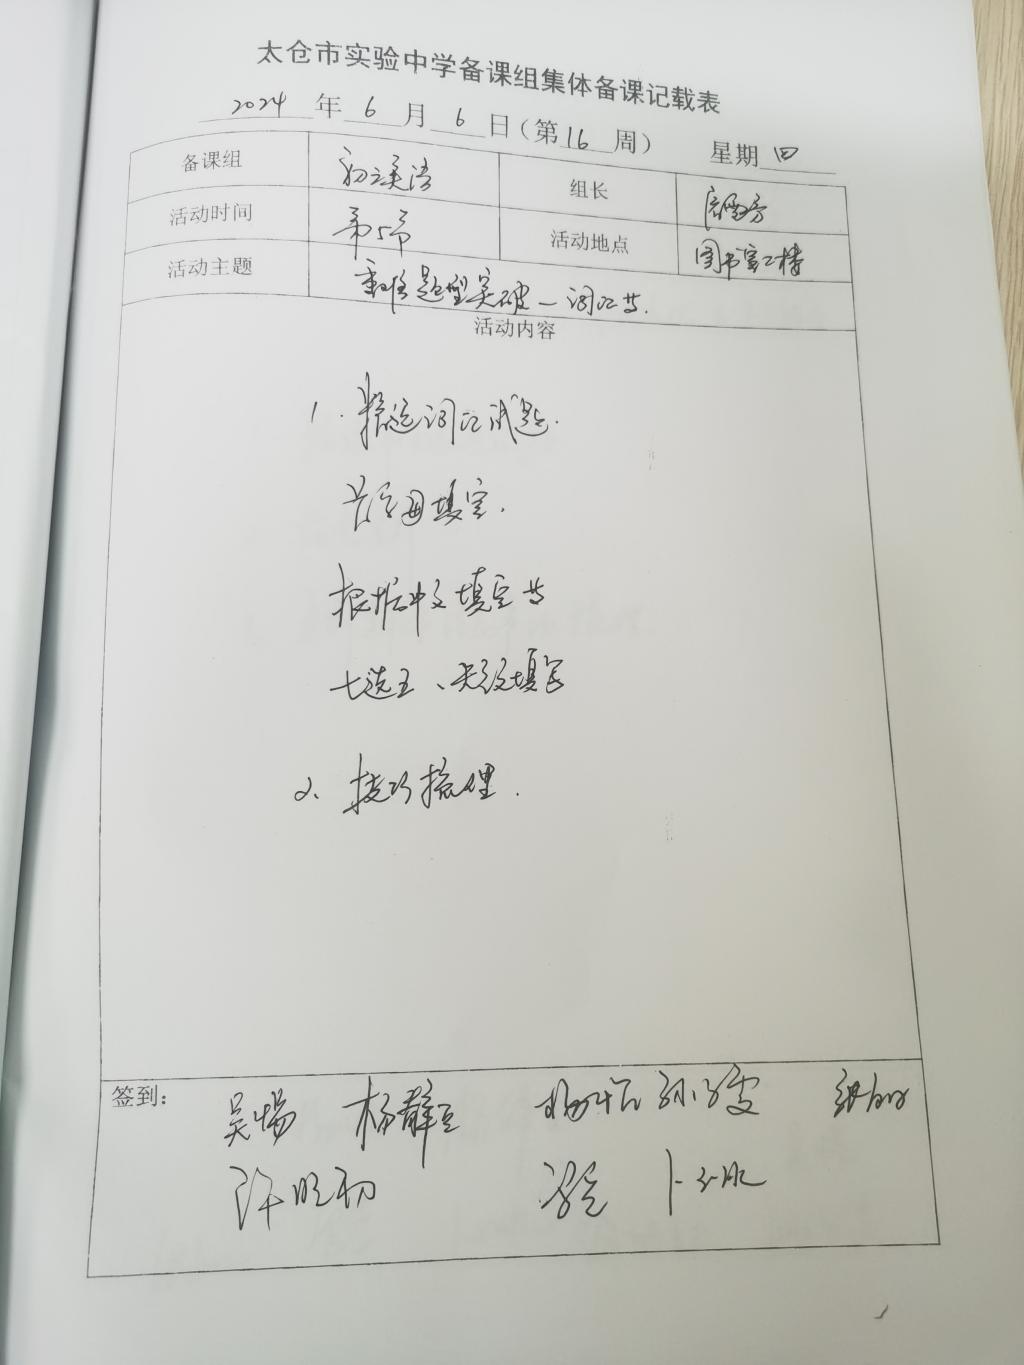 太仓市实验中学备课组集体备课记载表
2024 年 6 月 6 日（第 16 周） 星期 四
备课组 初二英语 组长
活动时间 第5节 活动地点 图书室二楼
活动主题 重难题型突破—词汇等.
活动内容
1. 精选词汇试题.
首字母填空.
根据中文填空等
七选五、短文填空
2. 技巧梳理.
签到：
吴怡 杨静 孙雯
许 初